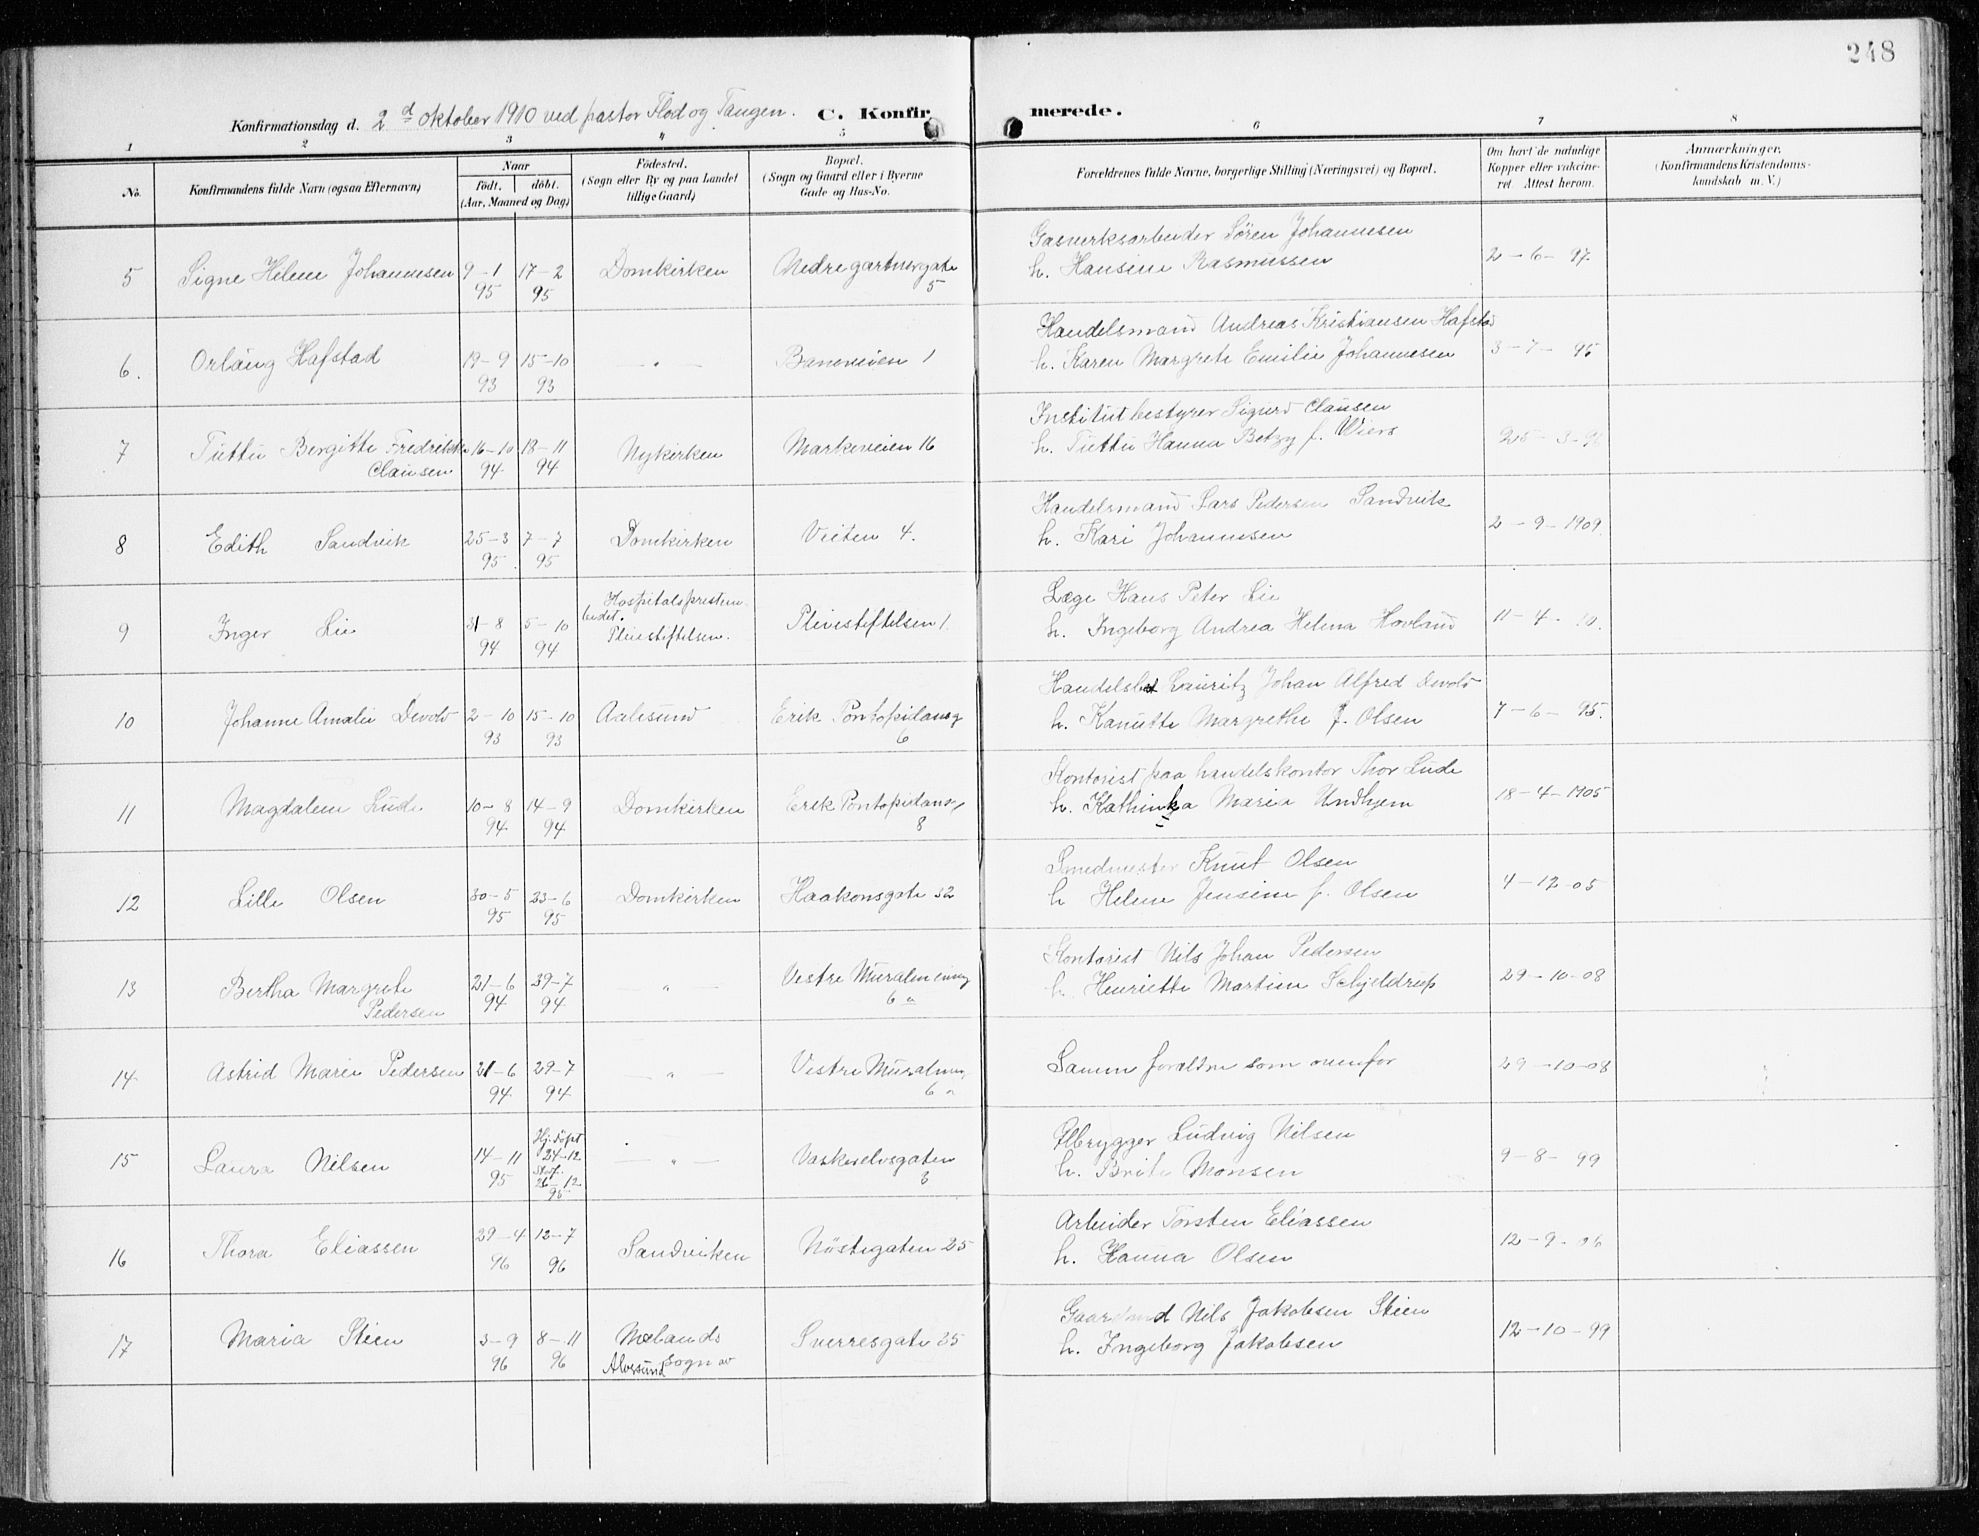 248
Konfirmationsdag d. 2 d oktober 1910 ved pastor Flod og Tangen. C. Konfirmerede.
1 2 3 4 5 6 7 8
No. Konfirmandens fulde Navn (ogsaa Efternavn) Naar født. døbt. (Aar, Maaned og Dag)
Fødested. (Sogn eller By og paa Landet tillige Gaard)
Bopæl. (Sogn og Gaard eller i Byerne Gade og Hus-No.
Forældrenes fulde Navne, borgerlige Stilling (Næringsvei) og Bopæl.
Om havt de naturlige Kopper eller vakcineret. Attest herom.
Anmærkninger. (Konfirmandens Kristendomskundskab m. V.)
5 Signe Helene Johannesen 9-1 95 17-2 95 Domkirken Nedre gartnergate 5
Gasverksarbeider Sören Johannesen
h. Hansine Rasmussen 2-6-97.
6. Orlaug Hafstad 19-9 93 15-10 93 — " — Baneveien 1
Handelsmand Andreas Kristiansen Hafstad
h. Karen Margrete Emilie Johannesen 3-7-95
7 Tuttu Bergitte Fredrikke Clausen 16-10 94 18-11 94 Nykirken Markeveien 16
Institutbestyrer Sigurd Clausen
h. Tuttu Hanna Betzy f. Wiers 25-3-
8 Edith Sandvik 25-3 95. 7-7 95 Domkirken Veiten 4.
Handelsmand Lars Pedersen Sandvik
h. Kari Johannesen 2-9-1909.
9 Inger Lie 31-8 94 5-10 94 Hospitalsprestembedet. Pleiestiftelsen. Pleiestiftelsen 1.
Læge Hans Peter Lie
h. Ingeborg Andrea Helena Hovland 11-4-
10 Johanne Amalie Devold 2-10 93 15-10 93 Aalesund Erik Pontopidansg 6
Lauritz Johan Alfred Devold
h. Kanutte Margrethe f. Olsen 7-6-95.
11 Magdalene Lude 10-8 94 14-9 94 Domkirken Erik Pontopidansg 8
Kontorist paa handelskontor Thor Lude
h. Kathinka Maria Undhjem 18-4-1905
12 Lille Olsen 30-5 95 23-6 95 Domkirken Haakonsgate 32
Smedmester Knut Olsen
h Helene Jensine f. Olsen 4-12-05
13 Bertha Margrete Pedersen 21-6 94 29-7 94 — " — Vestre Muralmenning 6 a
Kontorist Nils Johan Pedersen
h. Henriette Martine Schjeldrup 29-10-08
14 Astrid Marie Pedersen 21-6 94 29-7 94 — " — Vestre Muralmen. 6 a
Samme foreldre som ovenfor 29-10-08
15 Laura Nilsen 14-11 95 Hj. döpt 24-12 Stadf. 26-12 95. — " — Vaskerelvsgaten
Ølbrygger Ludvig Nilsen
h. Brite Monsen 9-8-99
16 Thora Eliassen 29-4 96 12-7 96 Sandviken Nöstegaten 25
Arbeider Torsten Eliassen
h. Hanna Olsen 12-9-06
17 Maria Steen 3-9 96 8-11 96 Mælands sogn av Alversund Sverresgate 25
Gaardmand Nils Jakobsen Steen
h. Ingeborg Jakobsen 12-10-99